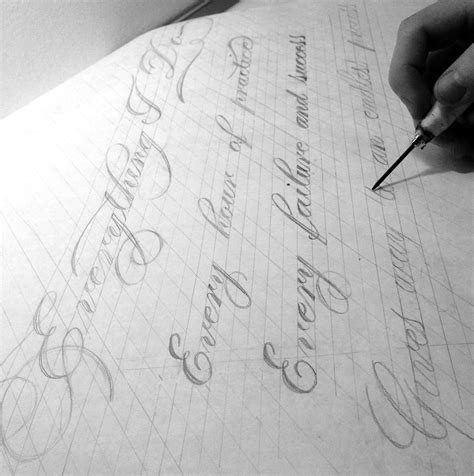 Everything I Do
Every hour of practice
Every failure and success
Gives away an